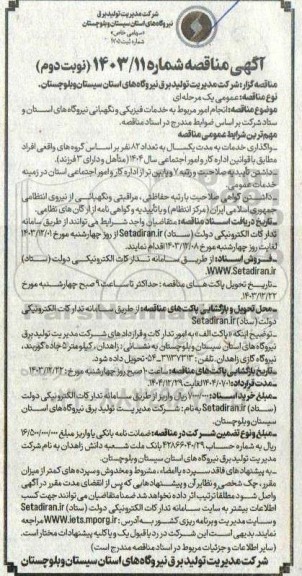 شرکت مدیریت تولید برق
نیروگاه‌های استان سیستان وبلوچستان
«سهامی خاص»
آگهی مناقصه شماره ۱۴۰۳/۱۱ (نوبت دوم)
مناقصه گزار: شرکت مدیریت تولید برق نیروگاه‌های استان سیستان وبلوچستان.
نوع مناقصه: عمومی یک مرحله‌ای
موضوع مناقصه: انجام امور مربوط به خدمات فیزیکی و نگهبانی نیروگاه‌های استان و
ستاد شرکت بر اساس ضوابط مندرج در اسناد مناقصه.
مهم‌ترین شرایط عمومی مناقصه
_واگذاری خدمات به مدت یکسال به تعداد ۸۲ نفر بر اساس گروه های واقعی افراد
مطابق با قوانین اداره کار و امور اجتماعی سال ۱۴۰۴ (متأهل و دارای ۳ فرزند).
_داشتن تأییدیه صلاحیت و رتبه ۷ و پایین تر از اداره کار و امور اجتماعی استان در زمینه
خدمات عمومی.
_داشتن گواهی صلاحیت یا رتبه حفاظتی، مراقبتی و نگهبانی از نیروی انتظامی
جمهوری اسلامی ایران (مرکز انتظام) و یا تأییدیه و گواهی نامه از ارگان های نظامی.
_تاریخ دریافت اسناد مناقصه: متقاضیان واجد شرایط می توانند از طریق سامانه
تدارکات الکترونیکی دولت (ستاد) Setadiran.ir از روز چهارشنبه مورخ ۱۴۰۳/۱۲/۰۱
لغایت روز چهارشنبه مورخ ۱۴۰۳/۱۲/۰۸ اقدام نمایند.
_فروش اسناد: از طریق سامانه تدارکات الکترونیکی دولت (ستاد)
WWW.Setadiran.ir.
_تاریخ تحویل پاکت های مناقصه: حداکثر تا ساعت ۹ صبح چهارشنبه مورخ
۱۴۰۳/۱۲/۲۲
_محل تحویل و بازگشایی پاکت های مناقصه: از طریق سامانه تدارکات الکترونیکی
دولت (ستاد) Setadiran.ir
_توضیح اینکه پاکت الف به امور تدارکات و قراردادهای شرکت مدیریت تولید برق
نیروگاه‌های استان سیستان وبلوچستان به نشانی: زاهدان، کیلومتر ۵ جاده کوربند،
نیروگاه گازی زاهدان، تلفن: ۳۱۳۷۷۳۱۳_۰۵۴ تحویل داده شود.
_تاریخ بازگشایی پاکت های مناقصه: ساعت ۱۰ صبح روز چهارشنبه مورخ: ۱۴۰۳/۱۲/۲۲
_مدت قرارداد: ۱۴۰۴/۰۱/۰۱ لغایت ۱۴۰۴/۱۲/۲۹
_مبلغ خرید اسناد: ۷/۰۰۰/۰۰۰ ریال واریز از طریق سامانه تدارکات الکترونیکی دولت
(ستاد) Setadiran.ir به نام: شرکت مدیریت تولید برق نیروگاه‌های استان
سیستان وبلوچستان.
_مبلغ و نوع تضمین شرکت در مناقصه: ضمانت نامه بانکی یا واریز مبلغ ۱۶/۵۰۰/۰۰۰/۰۰۰
ریال به شماره حساب بانک ملت شعبه دانش زاهدان به نام شرکت
مدیریت تولید برق نیروگاه‌های استان سیستان وبلوچستان.
_به پیشنهادهای فاقد سپرده یا امضاء، مشروط و مخدوش و سپرده های کمتر از میزان
مقرر، چک شخصی و نظایر آن و پیشنهادهایی که پس از انقضای مدت مقرر در آگهی
واصل شود مطلقا ترتیب اثر داده نخواهد شد ضمنا متقاضیان می توانند جهت کسب
اطلاعات بیشتر به سایت سامانه تدارکات الکترونیکی دولت (ستاد) Setadiran.ir
و سایت مدیریت و برنامه ریزی کشور به آدرس: WWW.iets.mporg.ir مراجعه
نمایند. بدیهی است این شرکت در رد یا قبول یک و یا کلیه پیشنهادات مختار است.
(سایر اطلاعات و جزئیات مربوط در اسناد مناقصه مندرج است)
شرکت مدیریت تولید برق نیروگاه‌های استان سیستان وبلوچستان